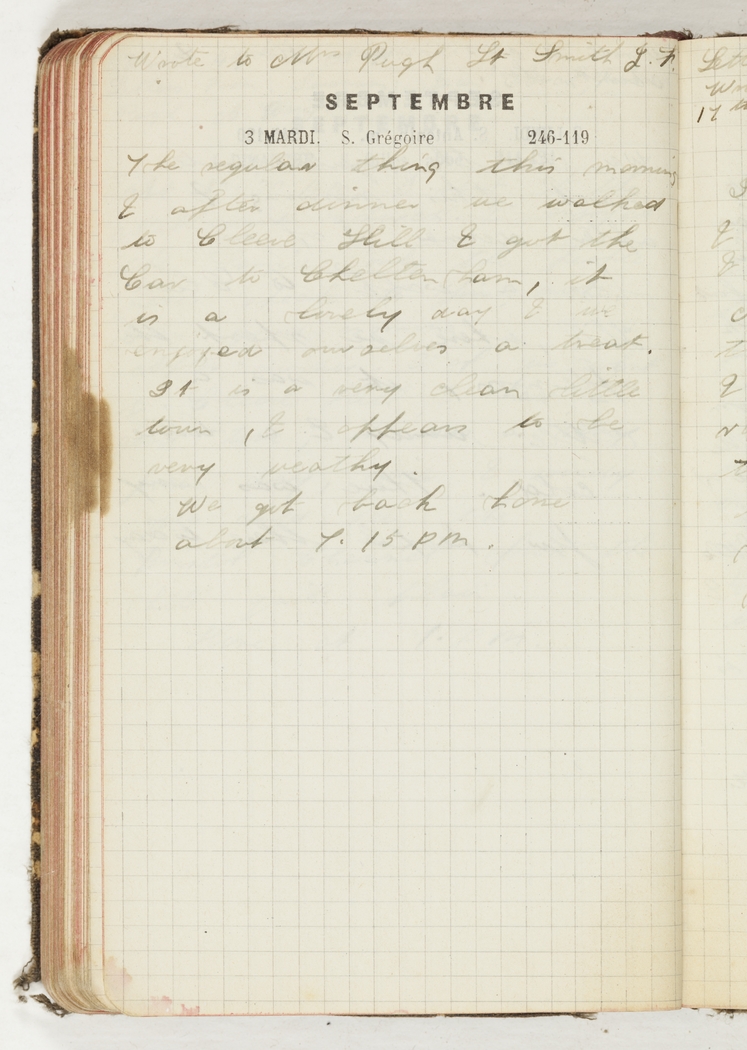 Wrote to Mrs Pugh Lt Smith J. F.
SEPTEMBRE
3 MARDI. S. Grégoire 246-119
The regular thing this morning
& after dinner we walked
to Cleeve Hill & got the
Car to Cheltenham, it
is a lovely day & we
enjoyed ourselves a treat.
It is a very clean little
town, & appears to be
very weathy.
We got back home
about 7. 15 PM.
17